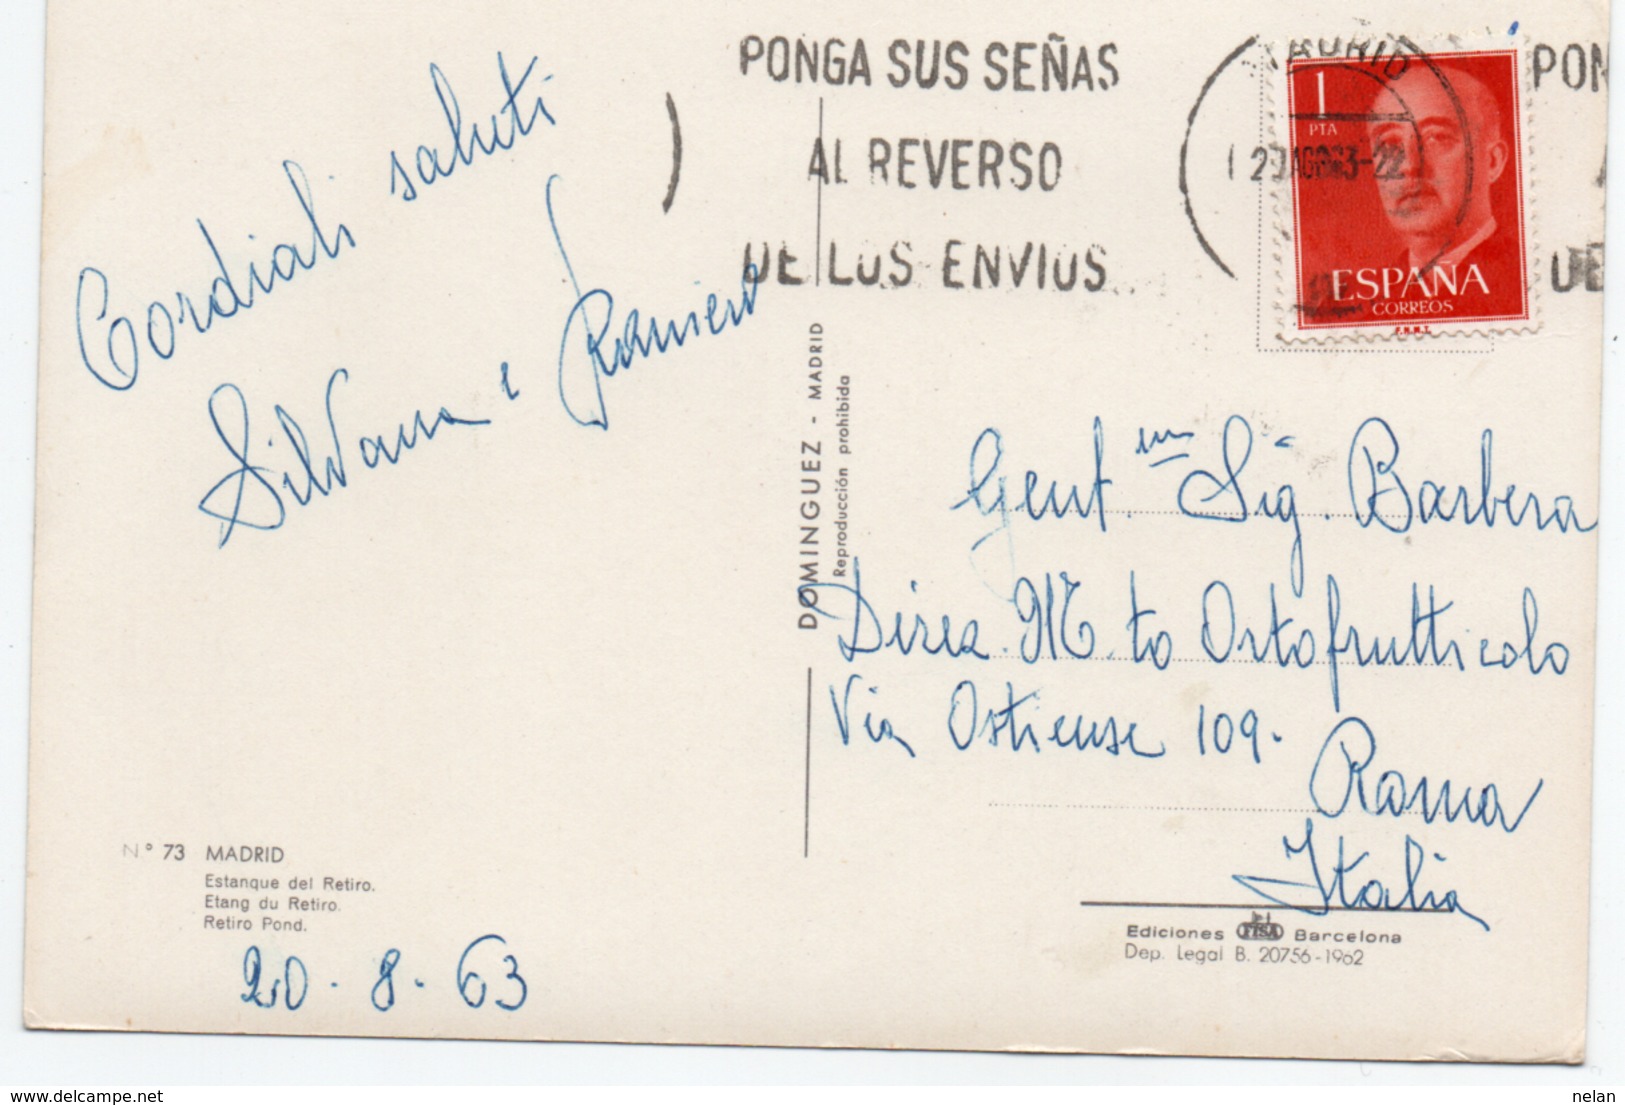 PONGA SUS SEÑAS
AL REVERSO
DE LOS ENVIOS
MADRID
20AGO63-22
PON
DE
1
PTA
ESPAÑA
CORREOS
F.N.M.T
Cordiali saluti
Silvana e Raniero
DOMINGUEZ - MADRID
Reproducción prohibida
Gent.ma Sig. Barbera
Direz. M.to Ortofrutticolo
Via Ostiense 109.
Roma
Italia
N° 73 MADRID
Estanque del Retiro.
Etang du Retiro.
Retiro Pond.
20.8.63
Ediciones FISA Barcelona
Dep. Legal B. 20756-1962
nelan